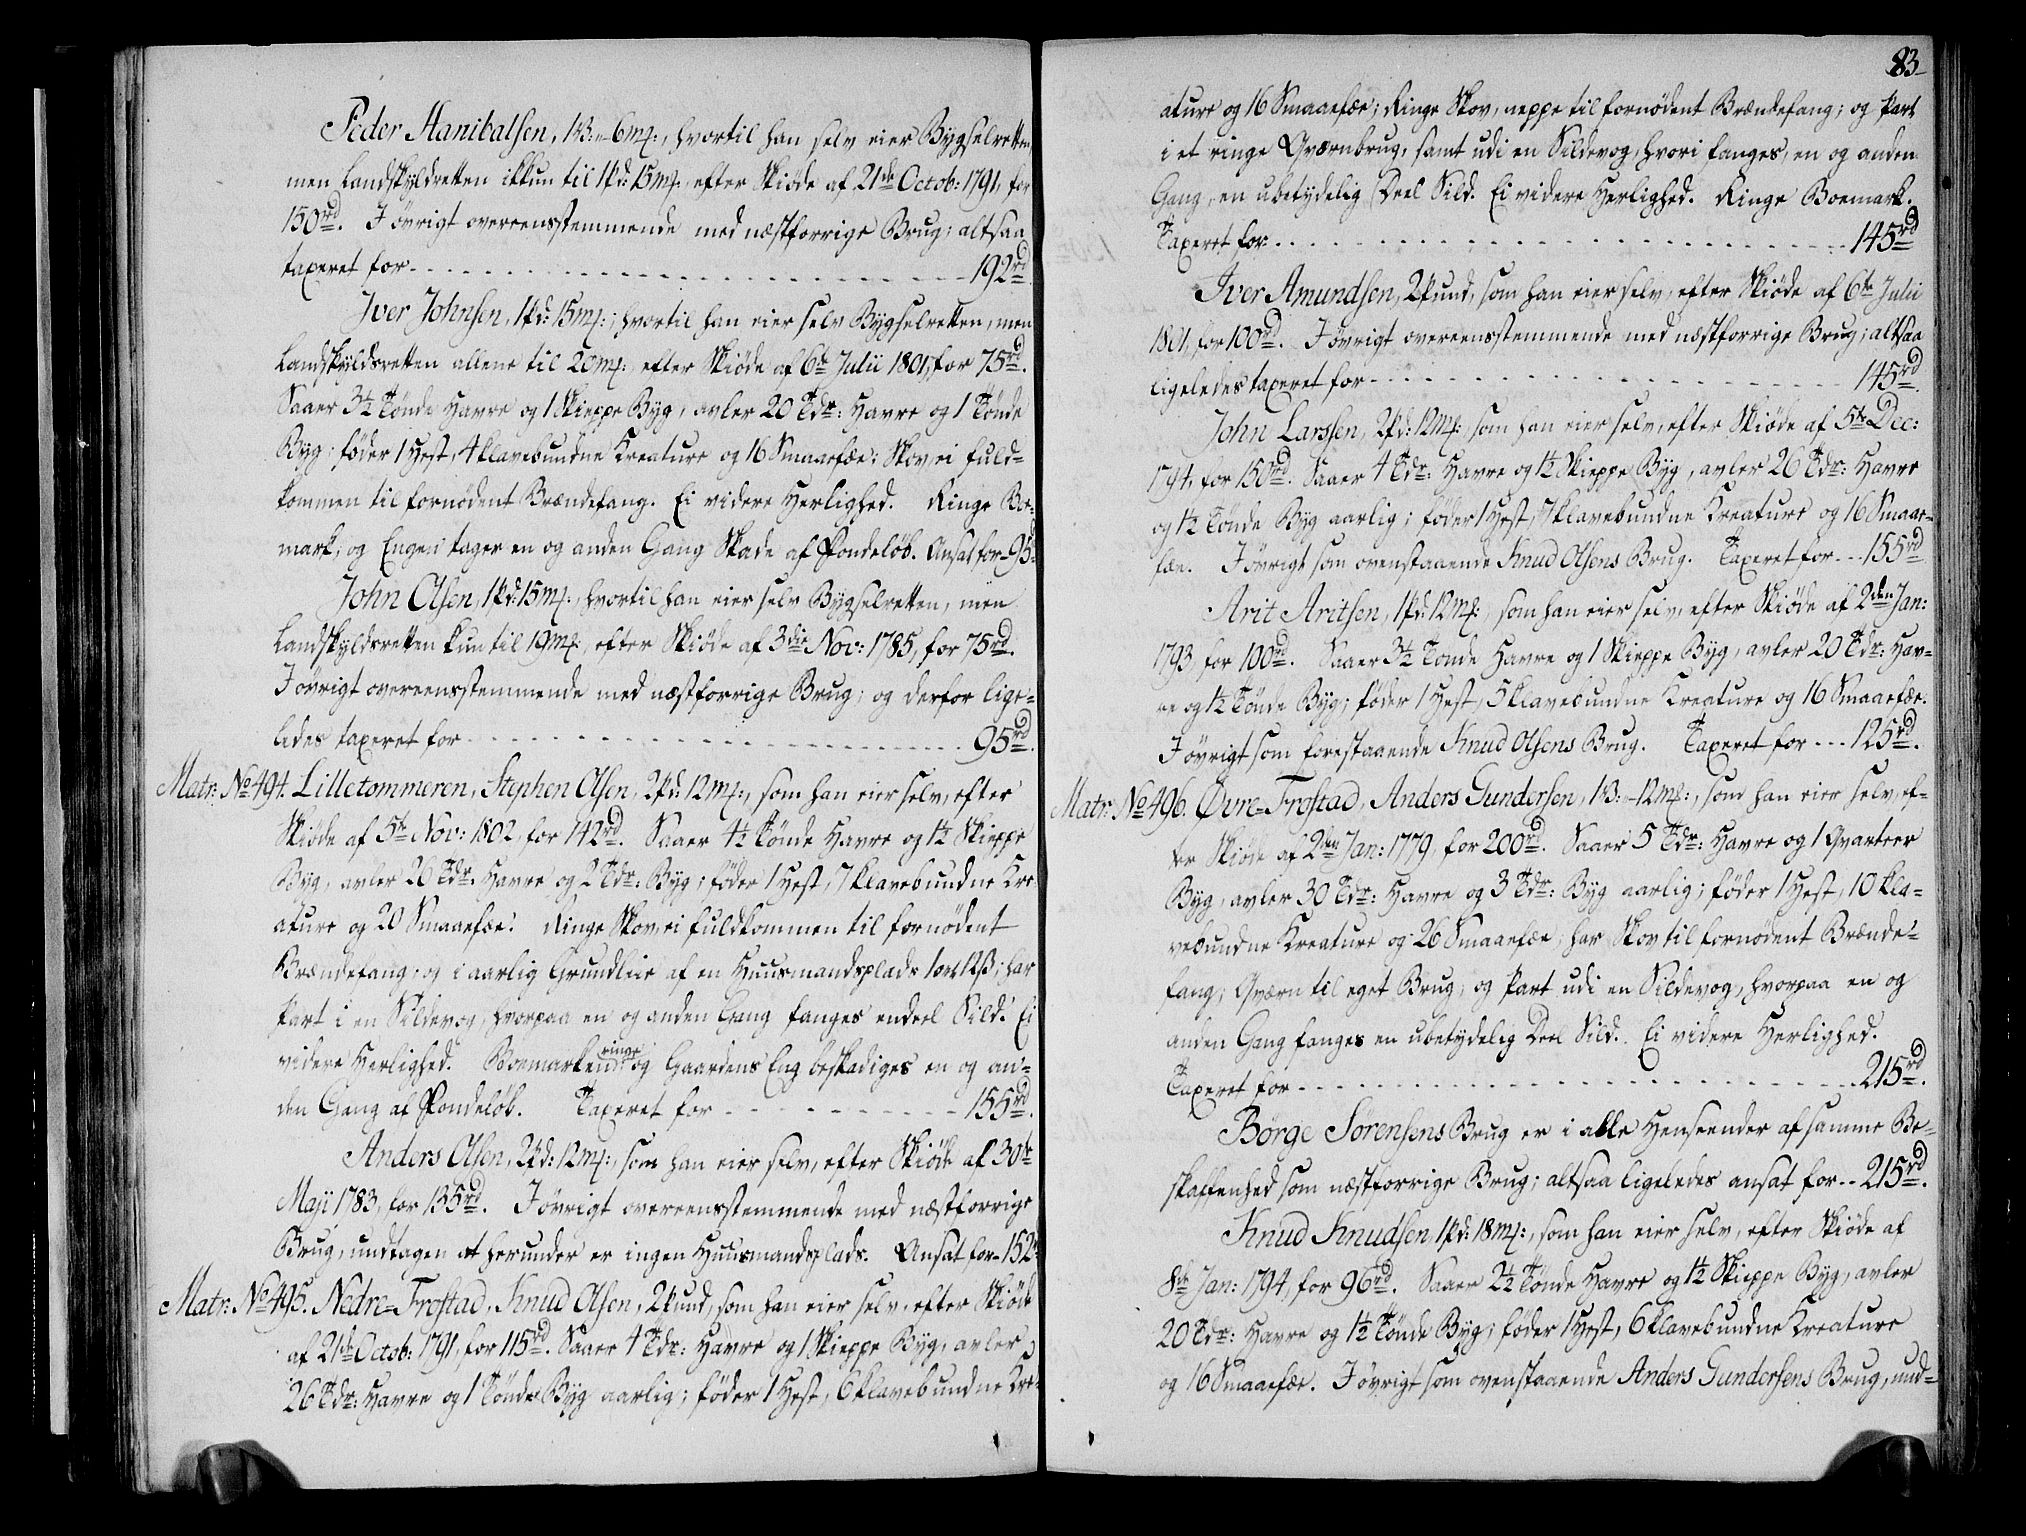 Peder Hanibalsen, 1 B: - 6 mk:, hvortil han selv eier Bygselretten,
men Landskyldretten ikkun til 1 pd: 15 mk:, efter Skiøde af 21de Octob: 1791, for
150 rd. I øvrigt overeensstemmende med næstforrige Brug; altsaa
taxeret for - - - - - - - - - - - - - - - 192 rd.
Iver Johnsen, 1 pd: 15 mk:, hvortil han eier selv Bygselretten, men
Landskyldsretten allene til 20 mk:, efter Skiøde af 6te Julii 1801, for 75 rd.
Saaer 3½ Tönde Havre og 1 Skieppe Byg, avler 20 Tdr: Havre og 1 Tönde
Byg; føder 1 Hest, 4 klavebundne Kreature og 16 Smaaefæe; Skov, ei fuld=
kommen til fornødent Brændefang. Ei videre Herlighed. Ringe Boe-
mark, og Engen tager en og anden Gang Skade af Fondeløb. Ansat for - 95 rd.
John Olsen, 1 pd: 15 mk:, hvortil han eier selv Bygselretten, men
Landskyldsretten kun til 19 mk:, efter Skiøde af 3die Nov: 1785, for 75 rd.
I øvrigt overeensstemmende med næstforrige Brug; og derfor lige=
ledes taxeret for - - - - - - - - - - - - - 95 rd.
Matr: No 494. Lilletommeren, Stephen Olsen, 2 pd: 12 mk:, som han eier selv, efter
Skiøde af 5te Nov: 1802, for 142 rd. Saaer 4½ Tönde Havre og 1½ Skieppe
Byg, avler 26 Tdr: Havre og 2 Tdr: Byg; føder 1 Hest, 7 klavebundne Kre-
ature og 20 Smaaefæe. Ringe Skov, ei fuldkommen til fornødent
Brændefang; og i aarlig Grundleie af en Huusmandsplads 1 ort 12 ß; har
Part i en Sildevog, hvorpaa en og anden Gang fanges endeel Sild. Ei
videre Herlighed. Boemarken ringe, og Gaardens Eng beskadiges en og an=
den Gang af Fondeløb. Taxeret for - - - - - - - - 155 rd.
Anders Olsen, 2 pd: 12 mk:, som han eier selv, efter Skiøde af 30te
Maji 1783, for 135 rd. I øvrigt overeensstemmende med næstforrige
Brug, undtagen at herunder er ingen Huusmandsplads. Ansat for - 152 rd.
Matr: No 495. Nedre=Frostad, Knud Olsen, 2 pund, som han eier selv, efter Skiøde
af 21de Octob: 1791, for 115 rd. Saaer 4 Tdr: Havre og 1 Skieppe Byg, avler
26 Tdr: Havre og 1 Tönde Byg aarlig; føder 1 Hest, 6 klavebundne Kre-
83
ature og 16 Smaaefæe; Ringe Skov, neppe til fornødent Brændefang; og Part
i et ringe Qværnbrug, samt udi en Sildevog, hvori fanges, en og anden
Gang, en ubetydelig Deel Sild. Ei videre Herlighed. Ringe Boemark.
Taxeret for - - - - - - - - - - - - - - - 145 rd
Iver Amundsen, 2 pund, som han eier selv, efter Skiøde af 6te Julii
1801, for 100 rd. I øvrigt overeensstemmende med næstforrige Brug; altsaa
ligeledes taxeret for - - - - - - - - - - - - - 145 rd.
John Larssen, 2 pd: 12 mk:, som han eier selv, efter Skiøde af 5te Dec:
1794, for 150 rd. Saaer 4 Tdr: Havre og 1½ Skieppe Byg, avler 26 Tdr: Havre
og 1½ Tönde Byg aarlig; føder 1 Hest, 7 klavebundne Kreature og 16 Smaae=
fæe. I øvrigt som ovenstaaende Knud Olsens Brug. Taxeret for - - 155 rd
Arit Aritsen, 1 pd: 12 mk:, som han eier selv, efter Skiøde af 2den Jan:
1793, for 100 rd. Saaer 3½ Tönde Havre og 1 Skieppe Byg, avler 20 Tdr: Hav=
re og 1½ Tönde Byg; føder 1 Hest, 5 klavebundne Kreature og 16 Smaaefæe.
I øvrigt som forestaaende Knud Olsens Brug. Taxeret for - - - 125 rd.
Matr: No 496. Øvre=Frostad, Anders Gundersen, 1 B: - 12 mk:, som han eier selv, ef=
ter Skiøde af 2den Jan: 1779, for 200 rd. Saaer 5 Tdr: Havre og 1 Qvarteer
Byg, avler 30 Tdr: Havre og 3 Tdr: Byg aarlig; føder 1 Hest, 10 kla=
vebundne Kreature og 26 Smaaefæe; har Skov til fornødent Brænde=
fang; Qværn til eget Brug; og Part udi en Sildevog, hvorpaa en og
anden Gang fanges en ubetydelig Deel Sild. Ei videre Herlighed.
Taxeret for - - - - - - - - - - - - - - - 215 rd.
Börge Sörensens Brug er i alle Henseender af samme Be=
skaffenhed som næstforrige Brug; altsaa ligeledes ansat for - - 215 rd.
Knud Knudsen 1 pd: 18 mk:, som han eier selv, efter Skiøde af
8de Jan: 1794, for 96 rd. Saaer 2½ Tönde Havre og 1½ Skieppe Byg, avler
20 Tdr: Havre og 1½ Tönde Byg; føder 1 Hest, 6 klavebundne Kreature
og 16 Smaaefæe. I øvrigt som ovenstaaende Anders Gundersens Brug, und=